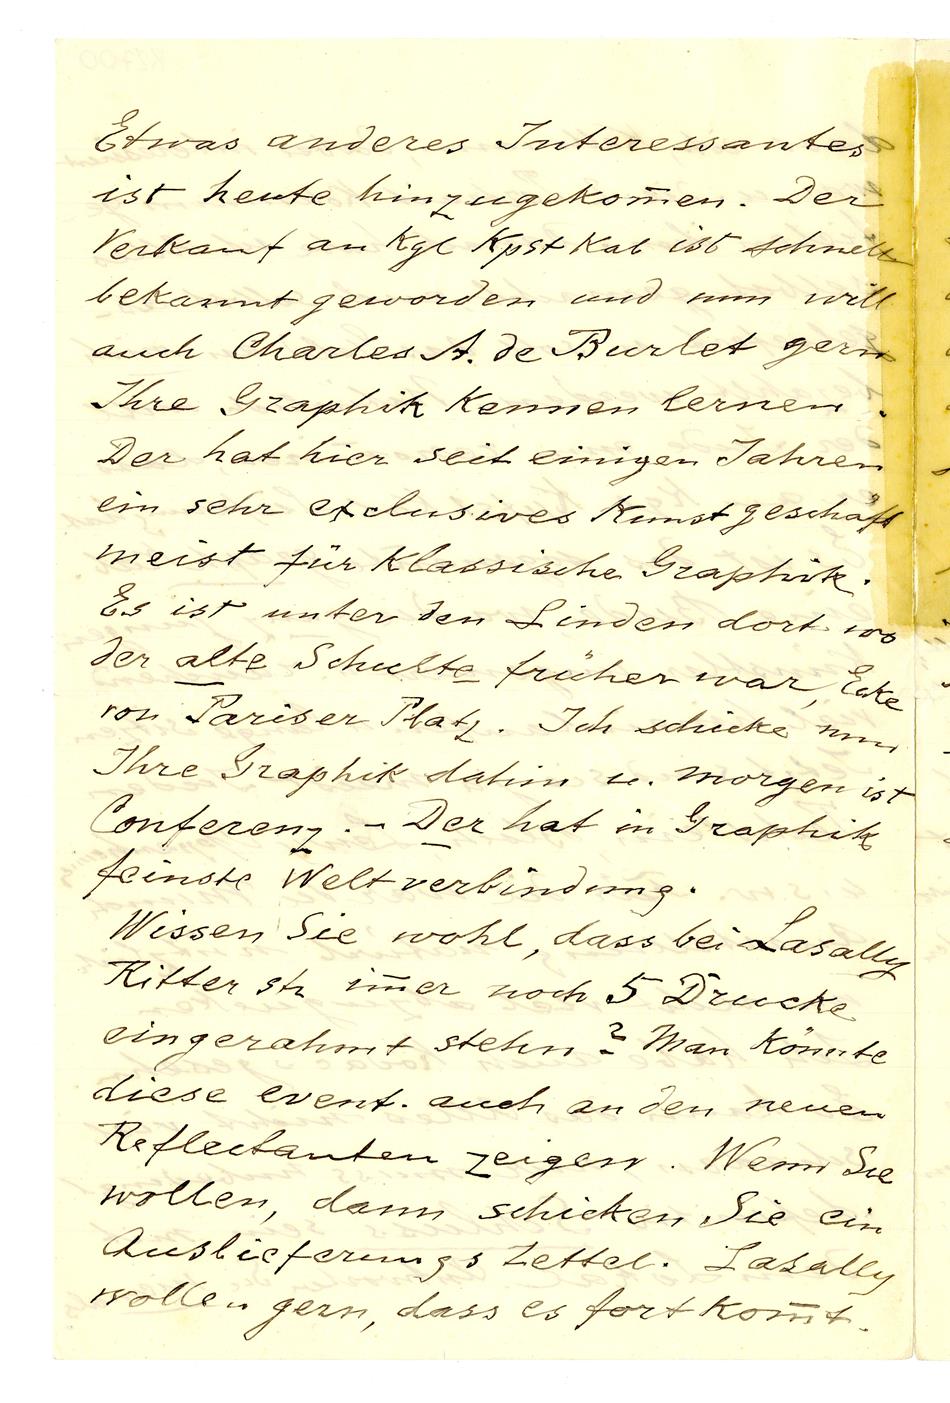 Etwas anderes Interessantes
ist heute hinzugekom̄en. Der
Verkauf an Kgl Kpst Kab ist schnell
bekannt geworden und nun will
auch Charles A. de Burlet gern
Ihre Graphik kennen lernen.
Der hat hier seit einigen Jahren
ein sehr exclusives Kunstgeschäft
meist für klassische Graphik.
Es ist unter den Linden dort wo
der alte Schulte früher war, Ecke
von Pariser Platz. Ich schicke nun
Ihre Graphik dahin u. morgen ist
Conferenz. – Der hat in Graphik
feinste Weltverbindung.
Wissen Sie wohl, dass bei Lasally
Ritterstr im̄er noch 5 Drucke
eingerahmt stehn? Man könnte
diese event. auch an den neuen
Reflectanten zeigen. Wenn Sie
wollen, dann schicken Sie ein
Auslieferungszettel. Lasally
wollen gern, dass es fortkom̄t.